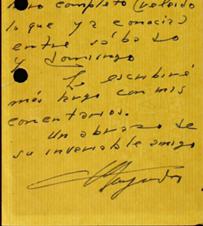 completo (releído
lo que ya conocía)
entre sábado
y domingo
Le escribiré
más largo con mis
comentarios.
Un abrazo de
su invariable amigo